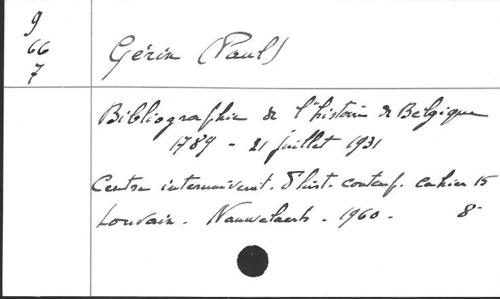 9
66
7
Gérin (Paul)
Bibliographie de l'histoire de Belgique
1789 - 21 juillet 1931
Centre interunivers. d'hist. contemp. cahier 15
Louvain. Nauwelaerts. 1960. 8°